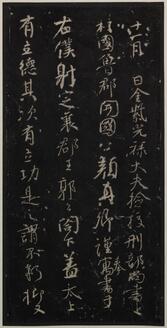 十一月日金紫光祿大夫檢挍刑部尚書上
柱國魯郡開國公顏真卿謹奉寓書于
右僕射定襄郡王郭公閤下蓋太上
有立德其次有立功是之謂不朽抑又